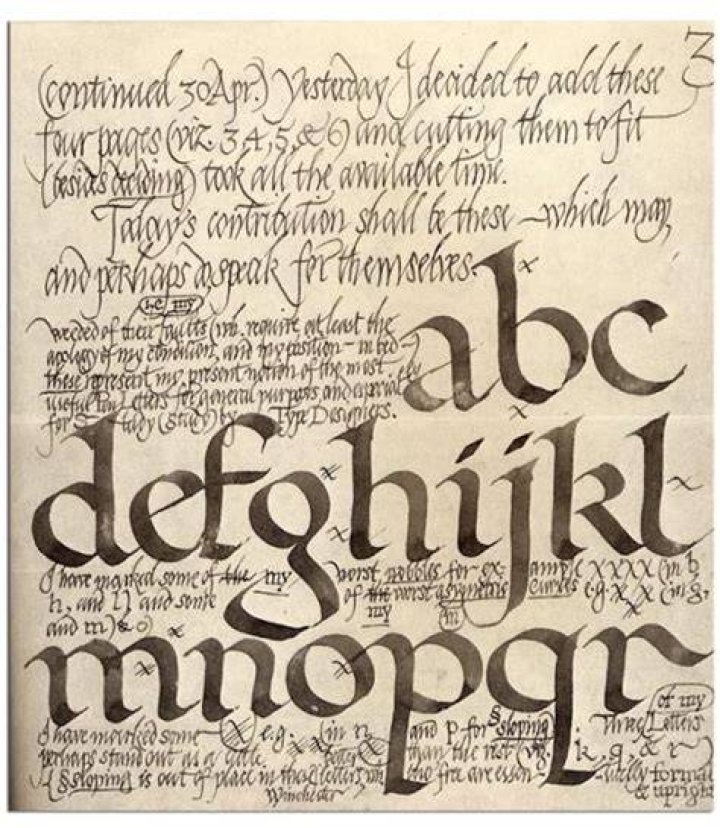 3
(continued 30 Apr.) Yesterday I decided to add these
four pages (viz. 3,4,5,& 6) and cutting them to fit
(besides deciding) took all the available time.
Today's contribution shall be these — which may,
and perhaps do, speak for themselves.
weeded of their faults (n.b. require at least the
apology of my condition, and my position — in bed —
these represent my present notion of the most
useful Pen Letters for general purposes and especially
for Study (study) by Type Designers.
abc
defghijkl
I have marked some of the my worst wobbles for example XXXX (in b
h, and l) and some of the worst asymmetric curves e.g. X X (in g,
and m) & o)
my
mnopqr
I have marked some X e.g. (in n and p for § sloping Three Letters of my
perhaps stand out as a little better than the rest (viz. k, q, & r)
(§ sloping is out of place in these letters, in the free essentially formal
Winchester & upright